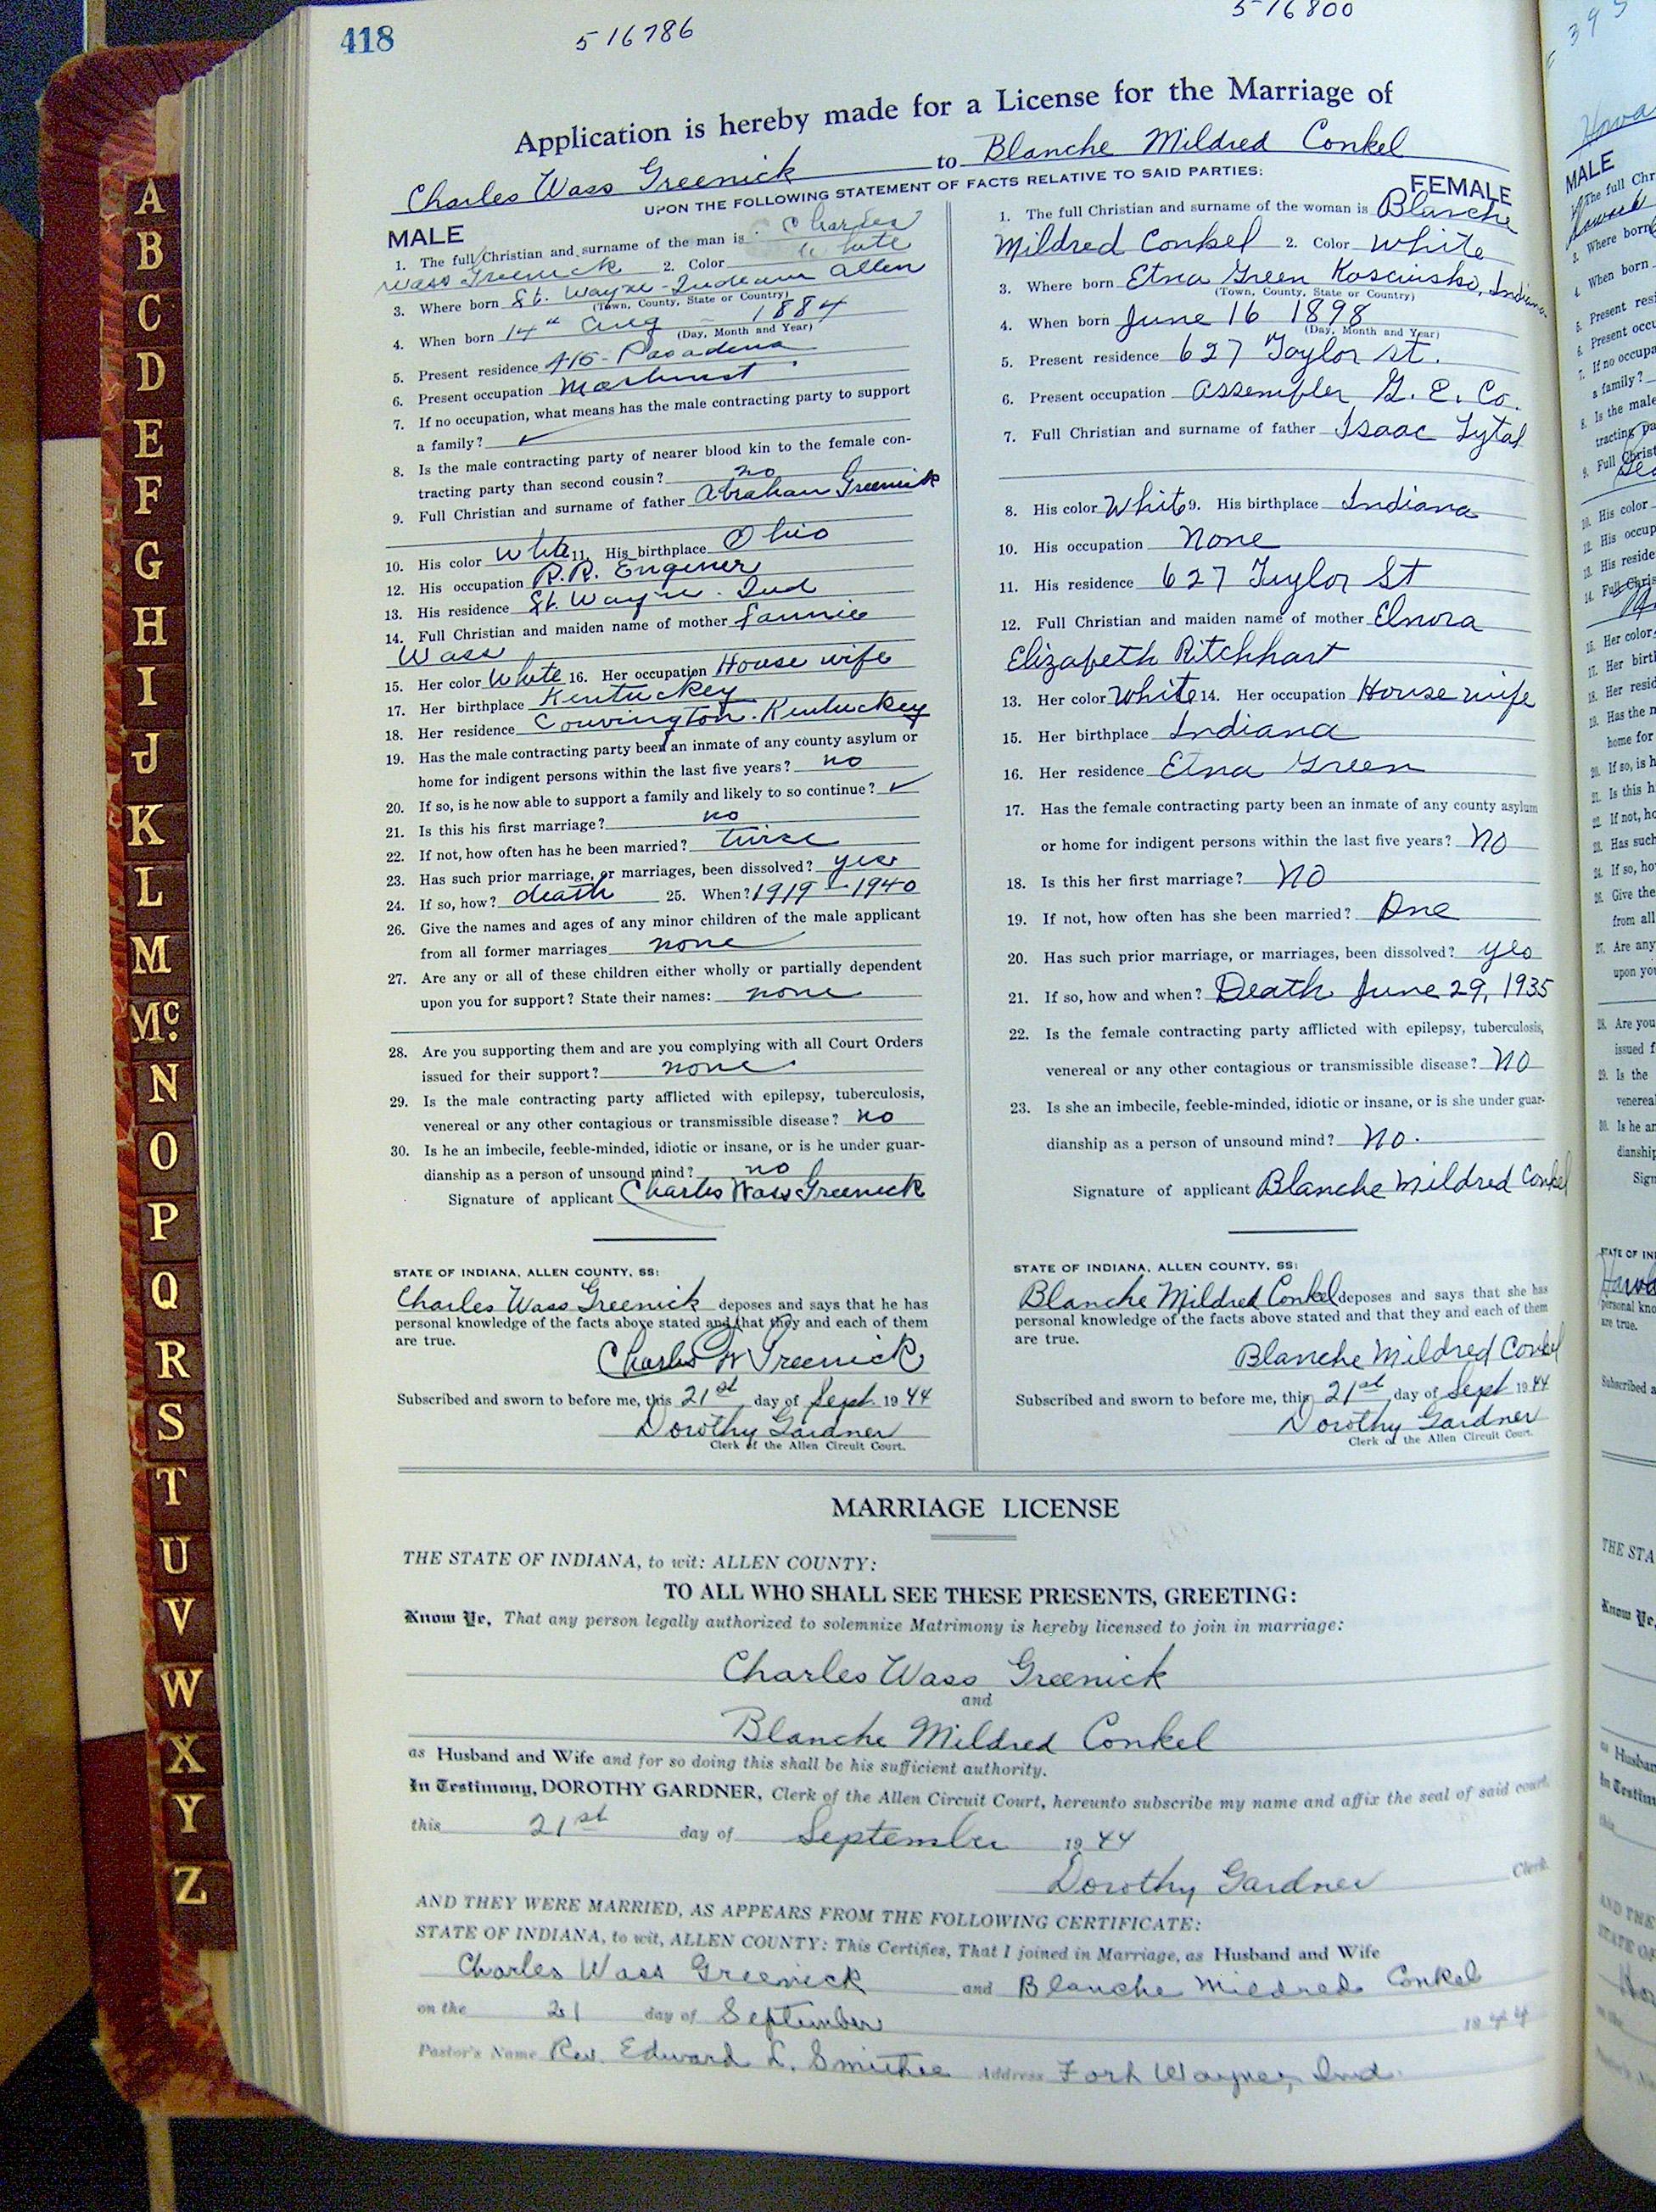 418
516786
516800
Application is hereby made for a License for the Marriage of
Charles Wass Greenick to Blanche Mildred Conkel
UPON THE FOLLOWING STATEMENT OF FACTS RELATIVE TO SAID PARTIES:
MALE
1. The full Christian and surname of the man is Charles
Wass Greenick 2. Color White
3. Where born Ft. Wayne - Indiana Allen
(Town, County, State or Country)
4. When born 14th Aug - 1884
(Day, Month and Year)
5. Present residence 415 - Pasadena
6. Present occupation Machinist
7. If no occupation, what means has the male contracting party to support
a family? ✓
8. Is the male contracting party of nearer blood kin to the female con-
tracting party than second cousin? no
9. Full Christian and surname of father Abraham Greenick
10. His color White 11. His birthplace Ohio
12. His occupation R.R. Enginer
13. His residence Ft. Wayne - Ind
14. Full Christian and maiden name of mother Fannie
Wass
15. Her color White 16. Her occupation House wife
17. Her birthplace Kentuckey
18. Her residence Couvington - Kentuckey
19. Has the male contracting party been an inmate of any county asylum or
home for indigent persons within the last five years? no
20. If so, is he now able to support a family and likely to so continue? ✓
21. Is this his first marriage? no
22. If not, how often has he been married? twise
23. Has such prior marriage, or marriages, been dissolved? yes
24. If so, how? death 25. When? 1919 - 1940
26. Give the names and ages of any minor children of the male applicant
from all former marriages none
27. Are any or all of these children either wholly or partially dependent
upon you for support? State their names: none
28. Are you supporting them and are you complying with all Court Orders
issued for their support? none
29. Is the male contracting party afflicted with epilepsy, tuberculosis,
venereal or any other contagious or transmissible disease? no
30. Is he an imbecile, feeble-minded, idiotic or insane, or is he under guar-
dianship as a person of unsound mind? no
Signature of applicant Charles Wass Greenick
STATE OF INDIANA, ALLEN COUNTY, SS:
Charles Wass Greenick deposes and says that he has
personal knowledge of the facts above stated and that they and each of them
are true.
Charles W Greenick
Subscribed and sworn to before me, this 21st day of Sept. 1944
Dorothy Gardner
Clerk of the Allen Circuit Court.
FEMALE
1. The full Christian and surname of the woman is Blanche
Mildred Conkel 2. Color White
3. Where born Etna Green Kosciusko, Indiana
(Town, County, State or Country)
4. When born June 16 1898
(Day, Month and Year)
5. Present residence 627 Taylor st.
6. Present occupation Assembler G. E. Co.
7. Full Christian and surname of father Isaac Lytal
8. His color White 9. His birthplace Indiana
10. His occupation None
11. His residence 627 Taylor St
12. Full Christian and maiden name of mother Elnora
Elizabeth Ritchhart
13. Her color White 14. Her occupation House wife
15. Her birthplace Indiana
16. Her residence Etna Green
17. Has the female contracting party been an inmate of any county asylum
or home for indigent persons within the last five years? No
18. Is this her first marriage? No
19. If not, how often has she been married? One
20. Has such prior marriage, or marriages, been dissolved? yes
21. If so, how and when? Death June 29, 1935
22. Is the female contracting party afflicted with epilepsy, tuberculosis,
venereal or any other contagious or transmissible disease? No
23. Is she an imbecile, feeble-minded, idiotic or insane, or is she under guar-
dianship as a person of unsound mind? No.
Signature of applicant Blanche Mildred Conkel
STATE OF INDIANA, ALLEN COUNTY, SS:
Blanche Mildred Conkel deposes and says that she has
personal knowledge of the facts above stated and that they and each of them
are true.
Blanche Mildred Conkel
Subscribed and sworn to before me, this 21st day of Sept 1944
Dorothy Gardner
Clerk of the Allen Circuit Court.
MARRIAGE LICENSE
THE STATE OF INDIANA, to wit: ALLEN COUNTY:
TO ALL WHO SHALL SEE THESE PRESENTS, GREETING:
Know Ye, That any person legally authorized to solemnize Matrimony is hereby licensed to join in marriage:
Charles Wass Greenick
and
Blanche Mildred Conkel
as Husband and Wife and for so doing this shall be his sufficient authority.
In Testimony, DOROTHY GARDNER, Clerk of the Allen Circuit Court, hereunto subscribe my name and affix the seal of said court,
this 21st day of September 1944
Dorothy Gardner Clerk.
AND THEY WERE MARRIED, AS APPEARS FROM THE FOLLOWING CERTIFICATE:
STATE OF INDIANA, to wit, ALLEN COUNTY: This Certifies, That I joined in Marriage, as Husband and Wife
Charles Wass Greenick and Blanche Mildred Conkel
on the 21 day of September 1944
Pastor's Name Rev. Edward L. Smithee Address Fort Wayne, Ind.
A
B
C
D
E
F
G
H
I
J
K
L
M
Mc.
N
O
P
Q
R
S
T
U
V
W
X
Y
Z